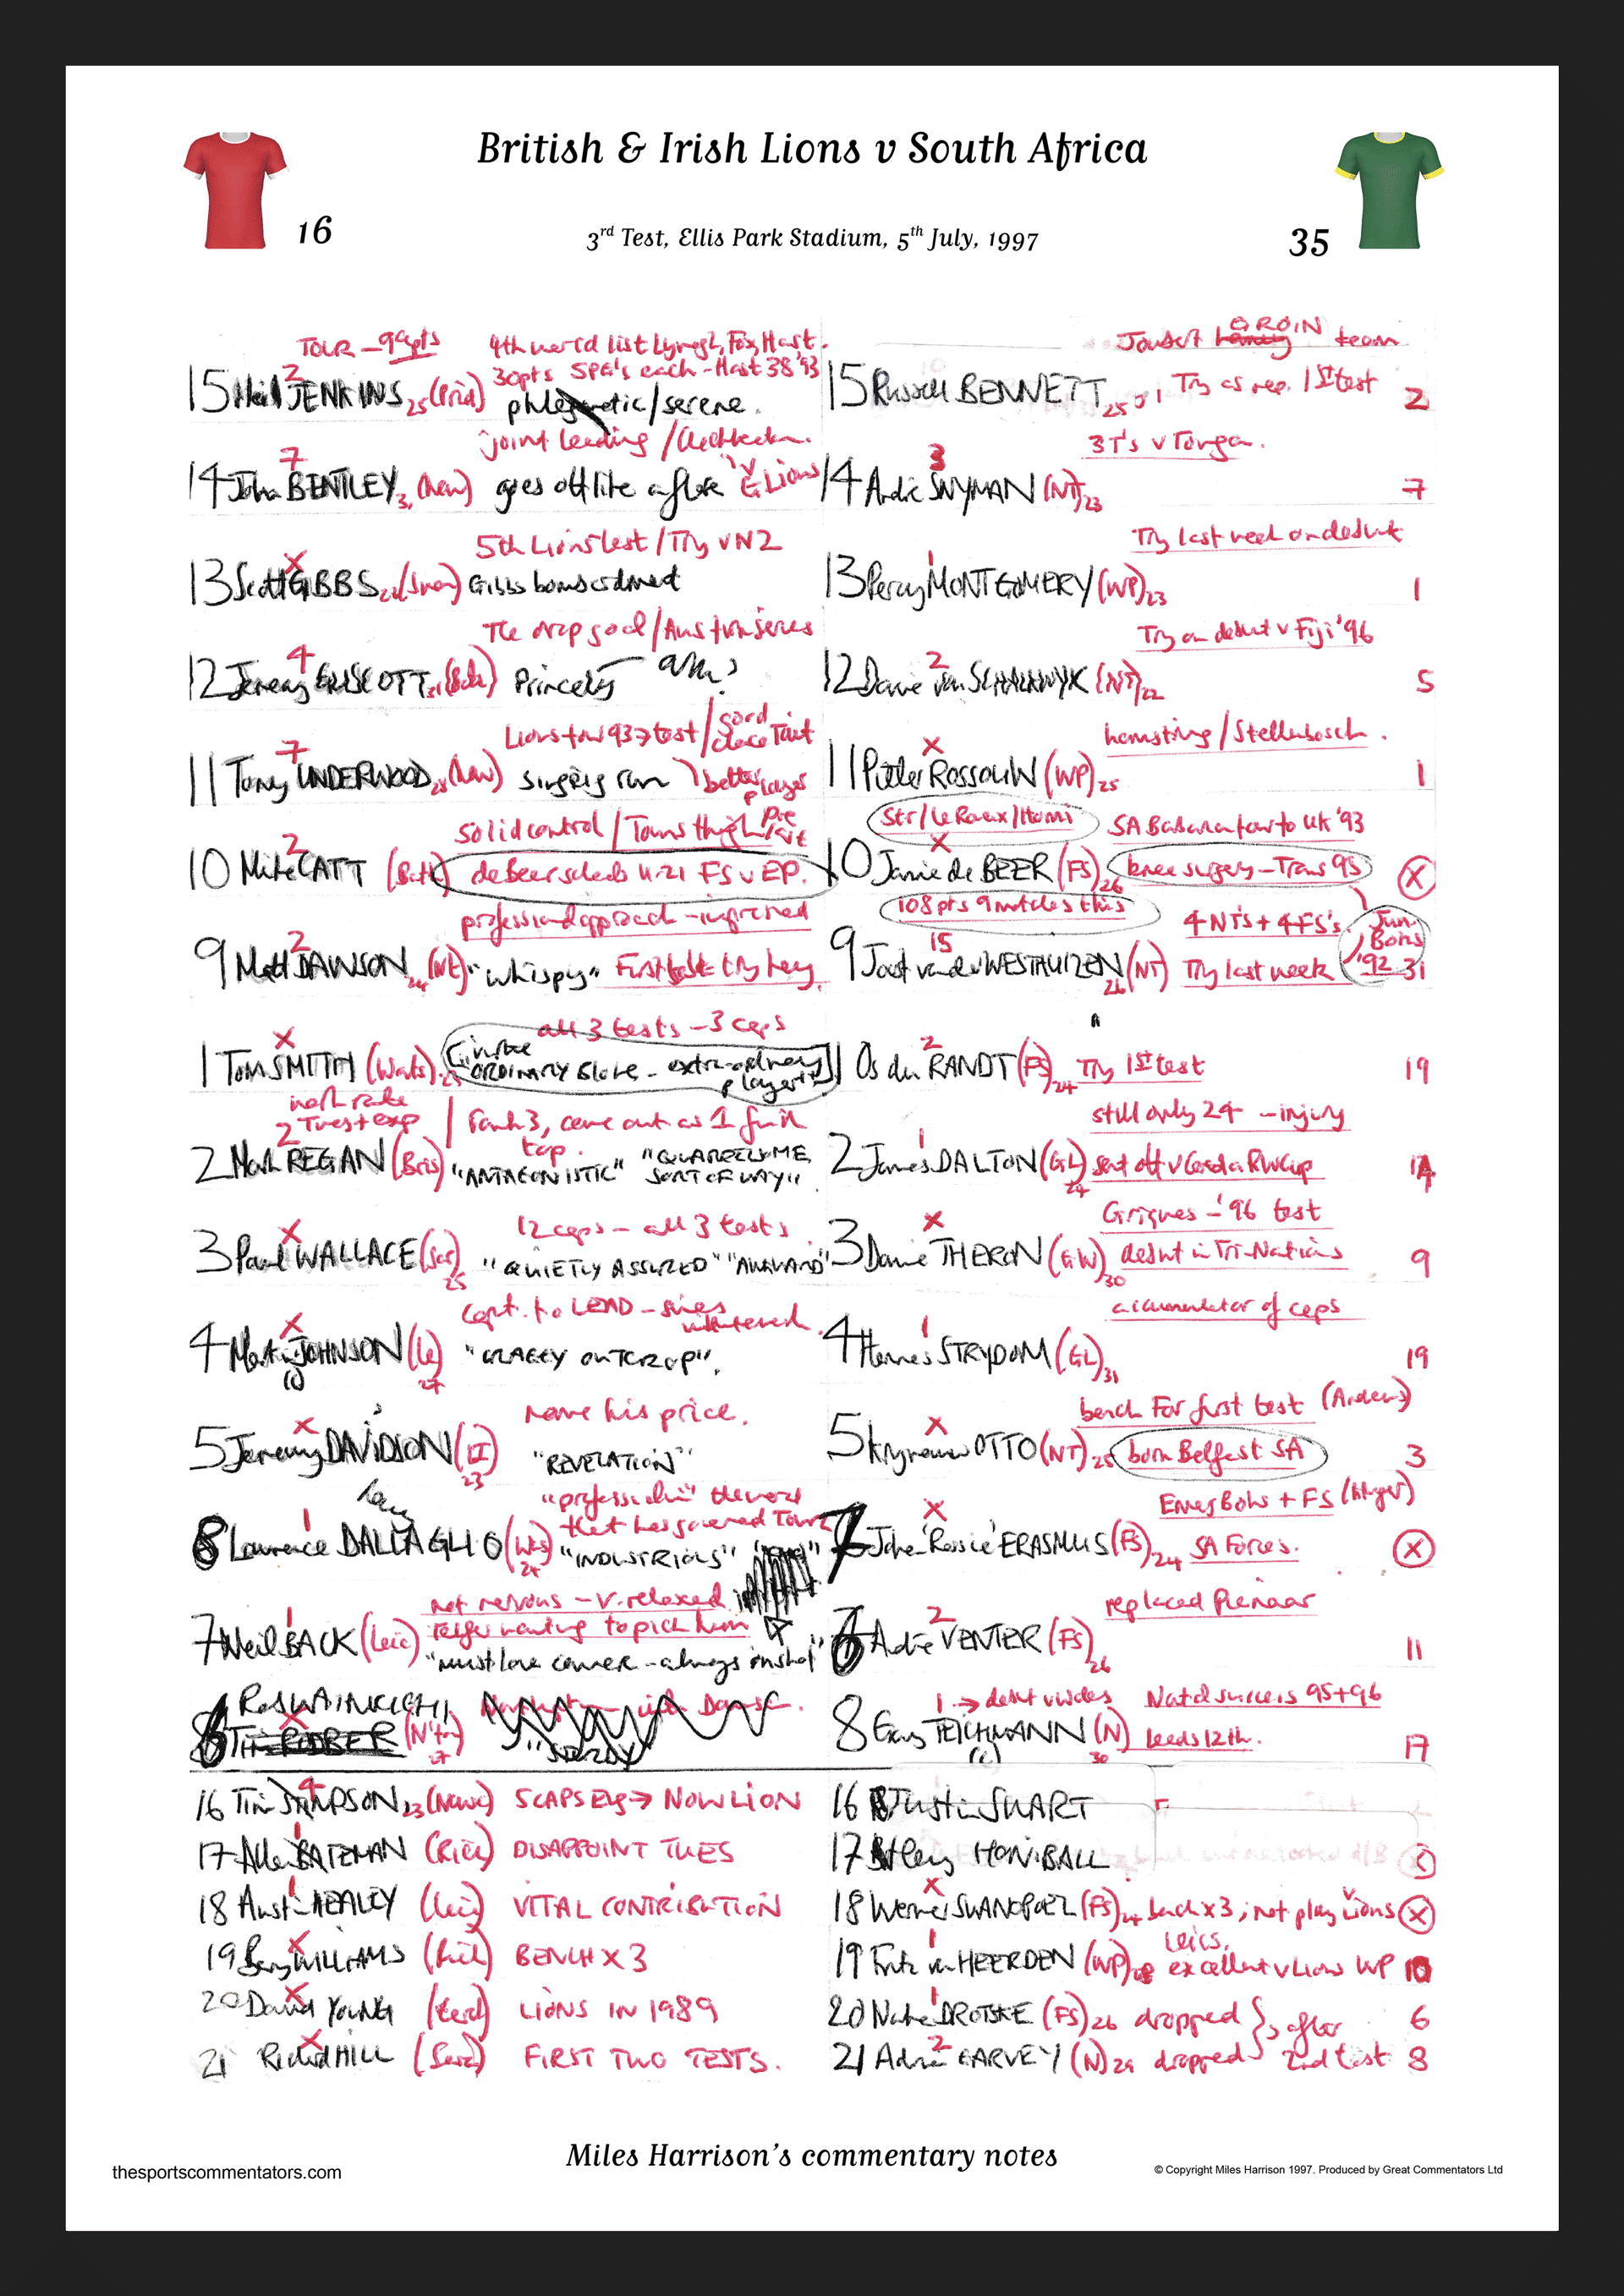 British & Irish Lions v South Africa
16
3rd Test, Ellis Park Stadium, 5th July, 1997
35
TOUR - 99pts
4th world list Lynagh, Fox, Hast.
2
30pts 5PG's each - Hast 38 '93
15 Neil JENKINS 25 (Prid)
phlegmatic/serene.
joint leading
7
14 John BENTLEY (New) goes off like a flare v Lions
5th Lions test / Try v NZ
X
13 Scott GIBBS (Swan) Gibbs bombardment
The drop goal / Aus fon series
4
12 Jeremy GUSCOTT 31 (Bath) Princely
Lions tour 93 → test / good
7
11 Tony UNDERWOOD 28 (New) singing run better player
solid control / Towns
2
10 Mike CATT (Bath) de Beer U-21 FS v EP.
professional approach - improved
2
9 Matt DAWSON 24 (Nt) "whispy" First test try hero
all 3 tests - 3 caps
X
1 TOM SMITH (Wats) 25 in the ORDINARY BLOKE - extraordinary player
work rate
2 Tues + exp / Faulk 3, came out as 1 from top.
2 Mark REGAN (Bris) "ANTAGONISTIC" "QUARRELSOME SORT OF WAY"
12 caps - all 3 tests
X
3 Paul WALLACE (Sar) 25 "QUIETLY ASSURED" "AWKWARD"
Capt. to LEAD -
X
4 Martin JOHNSON (Le) 27 "CRAGGY OUTCROP".
(c)
name his price.
X
5 Jeremy DAVIDSON (LI) 23 "REVELATION"
"professionalism" the word
1
that has governed Tour
8 Lawrence DALLAGLIO (Was) 24 "INDUSTRIOUS"
not nervous - v. relaxed
1
Telfer wanting to pick him
7 Neil BACK (Leic) "must love corner - always in shot"
Rob WAINWRIGHT
6 Tim RODBER (N'ton) 27
16 Tim STIMPSON 23 (Newc) 5CAPS Eng → NOW LION
17 Allan BATEMAN (Rich) DISAPPOINT TUES
18 Austin HEALEY (Leic) VITAL CONTRIBUTION
19 Barry WILLIAMS (Rich) BENCH X 3
20 David YOUNG (Card) LIONS IN 1989
21 Richard HILL (Sara) FIRST TWO TESTS.
Joubert GROIN team
15 Russell BENNETT 25 Try as rep. 1st test 2
3T's v Tonga.
3
14 Andre SNYMAN (NT) 23 7
Try last week on debut
1
13 Percy MONTGOMERY (WP) 23 1
Try on debut v Fiji '96
2
12 Danie van SCHALKWYK (NT) 22 5
hamstring / Stellenbosch.
X
11 Pieter ROSSOUW (WP) 25 1
Str/Le Roux/Honi SA Barbarian tour to UK '93
X
10 Jannie de BEER (FS) 26 knee surgery - Trans 95 X
108 pts 9 matches this
4 NT's + 4 FS's. Jun. Boks '92
15
9 Joost van der WESTHUIZEN (NT) 26 Try last week 31
2
1 Os du RANDT (FS) 24 Try 1st test 19
still only 24 - injury
1
2 James DALTON (GL) 24 sent off v Canada RWCup 14
Griques - '96 test
X
3 Dawie THERON (GW) 30 debut in Tri-Nations 9
accumulator of caps
1
4 Hannes STRYDOM (GL) 31 19
bench for first test (Andrews)
X
5 Krynauw OTTO (NT) 25 born Belfast SA 3
Emerg Boks + FS (Kruger)
X
7 Johan 'Rassie' ERASMUS (FS) 24 SA Forces. X
replaced Pienaar
2
6 Andre VENTER (FS) 26 11
1 → debut v Wales Natal success 95+96
8 Gary TEICHMANN (N) 30 leads 12th. 17
(c)
16 Justin SWART
17 Henry HONIBALL
X
18 Werner SWANEPOEL (FS) 24 bench x 3; not play v Lions X
1
Leics.
19 Fritz van HEERDEN (WP) excellent v Lions WP 10
1
20 Naka DROTSKE (FS) 26 dropped } after 6
2
21 Adrian GARVEY (N) 29 dropped 2nd test 8
Miles Harrison's commentary notes
thesportscommentators.com
© Copyright Miles Harrison 1997. Produced by Great Commentators Ltd